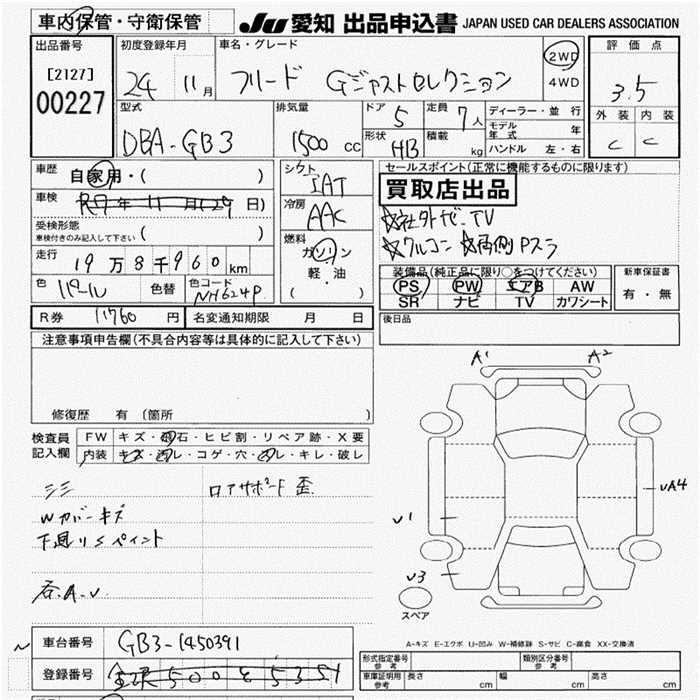 車内保管・守衛保管
JU 愛知 出品申込書 JAPAN USED CAR DEALERS ASSOCIATION
出品番号
[2127]
00227
初度登録年月
24 11 月
車名・グレード
フリード Gジャストセレクション
2WD
4WD
評価点
3.5
外装 内装
C C
型式
DBA-GB3
排気量
1500 cc
ドア 5
形状 HB
定員 7 人
積載 kg
ディーラー・並行
モデル年式 年
ハンドル 左・右
車歴
自家用・( )
車検
R7年 11月(29日)
受検形態
車検付きのみ記入して下さい ( )
走行
19万8千960km
色 パール 色替 色コード NH624P
シフト
IAT
冷房
AAC
燃料
ガソリン
軽・油
( )
セールスポイント(正常に機能するものに限ります)
買取店出品
☆社外ナビ、TV
☆クルコン ☆両側Pスラ
装備品(純正品に限り○をつけてください)
PS PW エアB AW
SR ナビ TV カワシート
新車保証書
有・無
後日品
R券 11760 円 名変通知期限 月 日
注意事項申告欄(不具合内容等は具体的に記入して下さい)
修復歴 有 (箇所 )
検査員
記入欄
FW キズ・飛石・ヒビ割・リペア跡・X要
内装 キズ・汚レ・コゲ・穴・スレ・キレ・破レ
シミ
Wカバーキズ
下廻りSペイント
各A.U
ロアサポート歪
A1 A2
UA4
U1
U3
スペア
A-キズ E-エクボ U-凹み W-補修跡 S-サビ C-腐食 XX-交換済
車台番号 GB3-1450391
登録番号 500 5354
形式指定番号
参考
類別区分番号
参考
車庫証明用
参考
長さ cm 幅 cm 高さ cm